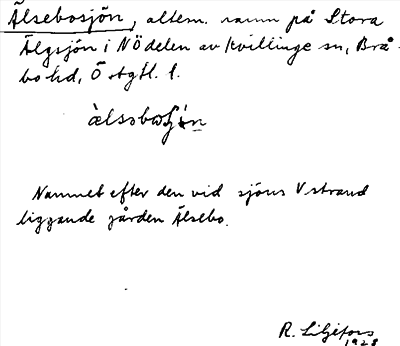 Älsebosjön, altern. namn på Stora
Älgsjön i NÖ delen av Kvillinge sn, Brå-
bo hd, Östgtl. l.
Namnet efter den vid sjöns V strand
liggande gården Älsebo.
R. Liljefors
1928